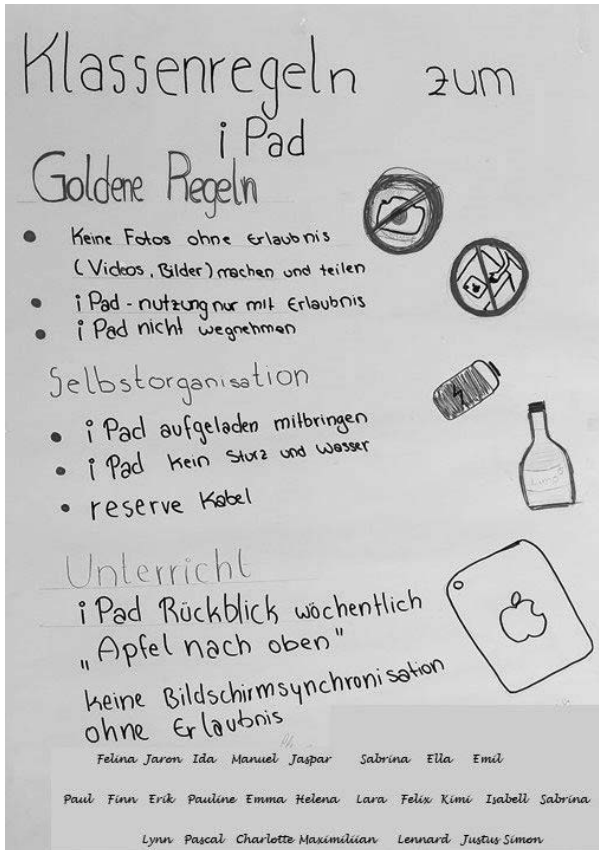 Klassenregeln zum
iPad
Goldene Regeln
• Keine Fotos ohne Erlaubnis
(Videos, Bilder) machen und teilen
• iPad - nutzung nur mit Erlaubnis
• iPad nicht wegnehmen
Selbstorganisation
• iPad aufgeladen mitbringen
• iPad kein Sturz und Wasser
• reserve Kabel
Limo
Unterricht
iPad Rückblick wöchentlich
„Apfel nach oben"
keine Bildschirmsynchronisation
ohne Erlaubnis
Felina Jaron Ida Manuel Jaspar Sabrina Ella Emil
Paul Finn Erik Pauline Emma Helena Lara Felix Kimi Isabell Sabrina
Lynn Pascal Charlotte Maximiliian Lennard Justus Simon